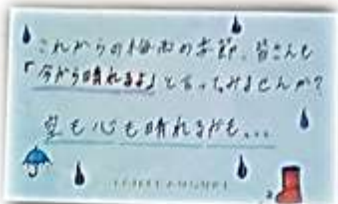 これからの梅雨の季節、皆さんも
「今から晴れるよ」と言ってみませんか?
空も心も晴れるかも...